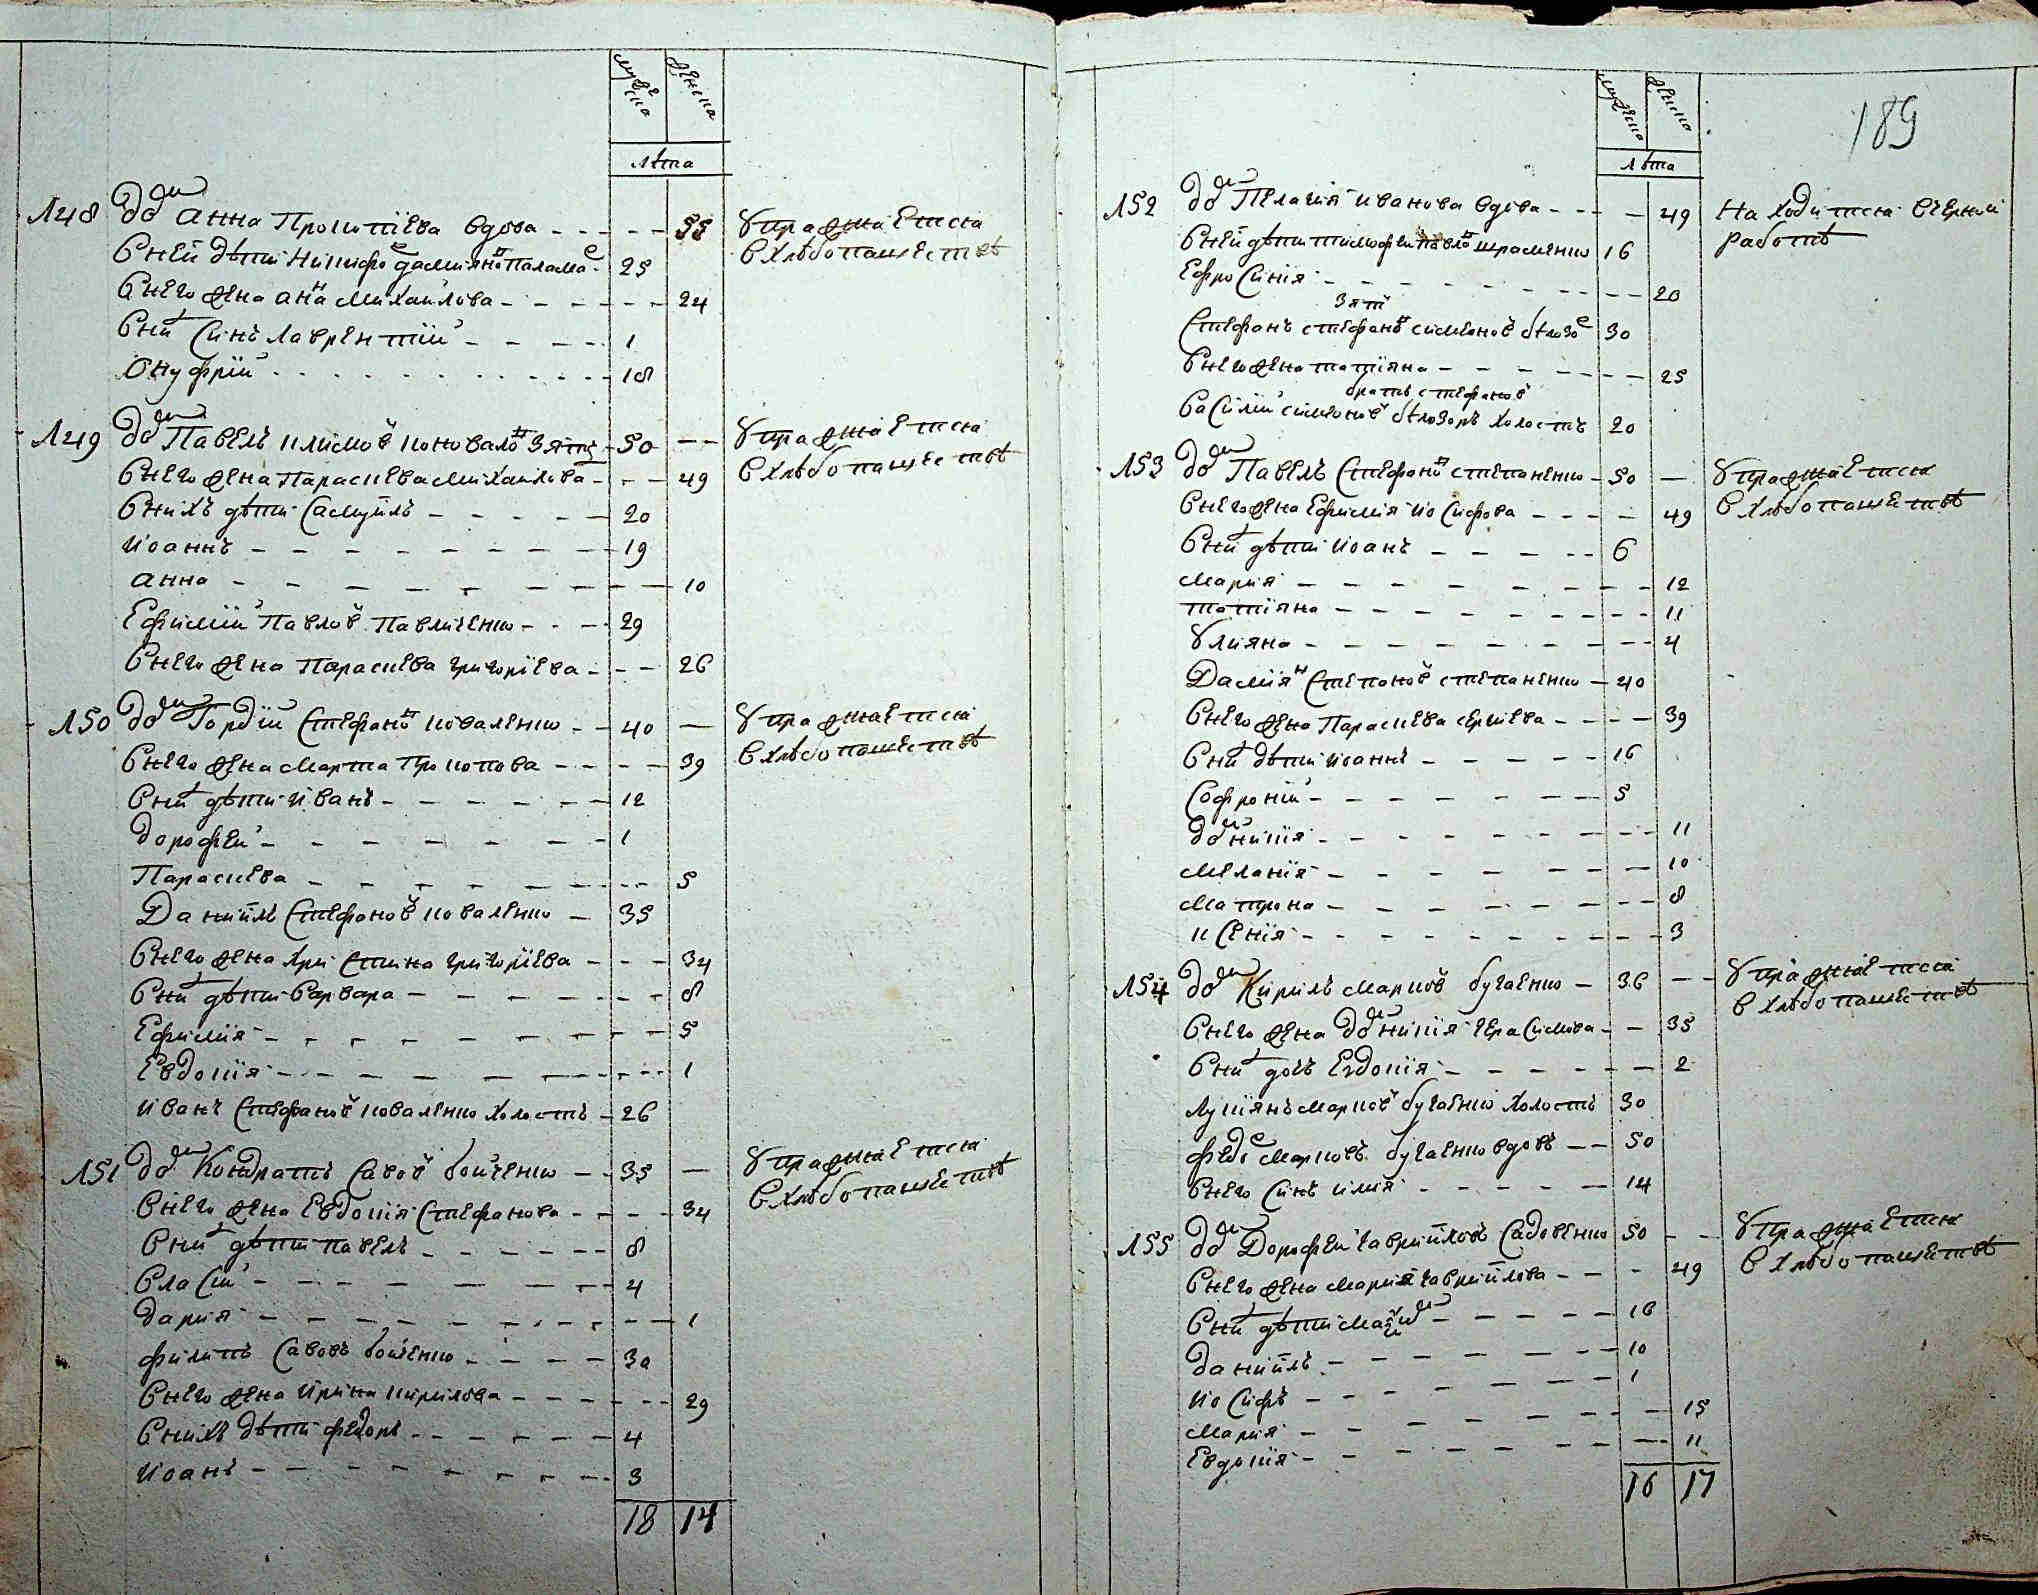 мужеска
женска
лѣта
148 Дво Анна Прокопіева вдова 55 упражняется
в хлѣбопашествѣ
В ней дѣти Никифо Даміяно Паламаре 25
В него жена Анна Михаилова 24
В ни синъ Лаврентій 1
Онуфрій 18
149 Дво Павелъ Климовъ Коновало зять 50 упражняется
в хлѣбопашествѣ
В него жена Параскева Михаилова 49
В нихъ дѣти Самуилъ 20
Иоаннъ 19
Анна 10
Ефимій Павловъ Павличенко 29
В него жена Параскева Григоріева 26
150 Дво Гордій Стефано Коваленко 40 упражняется
в хлѣбопашествѣ
В него жена Марта Прокопова 39
В ни дѣти Иванъ 12
Дорофей 1
Параскева 5
Даниилъ Стефановъ Коваленко 35
В него жена Христина Григоріева 34
В ни дѣти Варвара 8
Ефимія 5
Евдокія 1
Иванъ Стефановъ Коваленко холостъ 26
151 Дво Кондратъ Савовъ Бойченко 35 упражняется
в хлѣбопашествѣ
В него жена Евдокія Стефанова 34
В ни дѣти Павелъ 8
Власій 4
Дарія 1
Филипъ Савовъ Бойченко 30
В него жена Ирина Кирилова 29
В нихъ дѣти Федоръ 4
Иоанъ 3
18 14
189
мужеска
женска
лѣта
152 Дво Пелагія Иванова вдова 49 находится в черной
работѣ
В ней дѣти Тимофей Павло 16
Ефросинія 20
зять
Стефанъ Стефано Симеоновъ Бѣлозо 30
В него жена Татіяна 25
братъ Стефановъ
Василій Симеоновъ Бѣлозоръ холостъ 20
153 Дво Павелъ Стефано Степаненко 50 упражняется
в хлѣбопашествѣ
В него жена Ефимія Иосифова 49
В ни дѣти Иоанъ 6
Марія 12
Татіяна 11
Уліяна 4
Даміян Степановъ Степаненко 40
В него жена Параскева Сергіева 39
В ни дѣти Иоаннъ 16
Софроній 5
Домникія 11
Меланія 10
Матрона 8
Ксенія 3
154 Дво Кирилъ Марковъ Бугаенко 36 упражняется
в хлѣбопашествѣ
В него жена Домникія Герасимова 35
В ни дочь Евдокія 2
Лукіянъ Марковъ Бугаенко холостъ 30
Федо Марковъ Бугаенко вдовъ 50
В него синъ Илія 14
155 Дво Дорофей Гавриловъ Садовенко 50 упражняется
в хлѣбопашествѣ
В него жена Марія Гаврилова 49
В ни дѣти 16
Даниилъ 10
Иосифъ 1
Марія 15
Евдокія 11
16 17